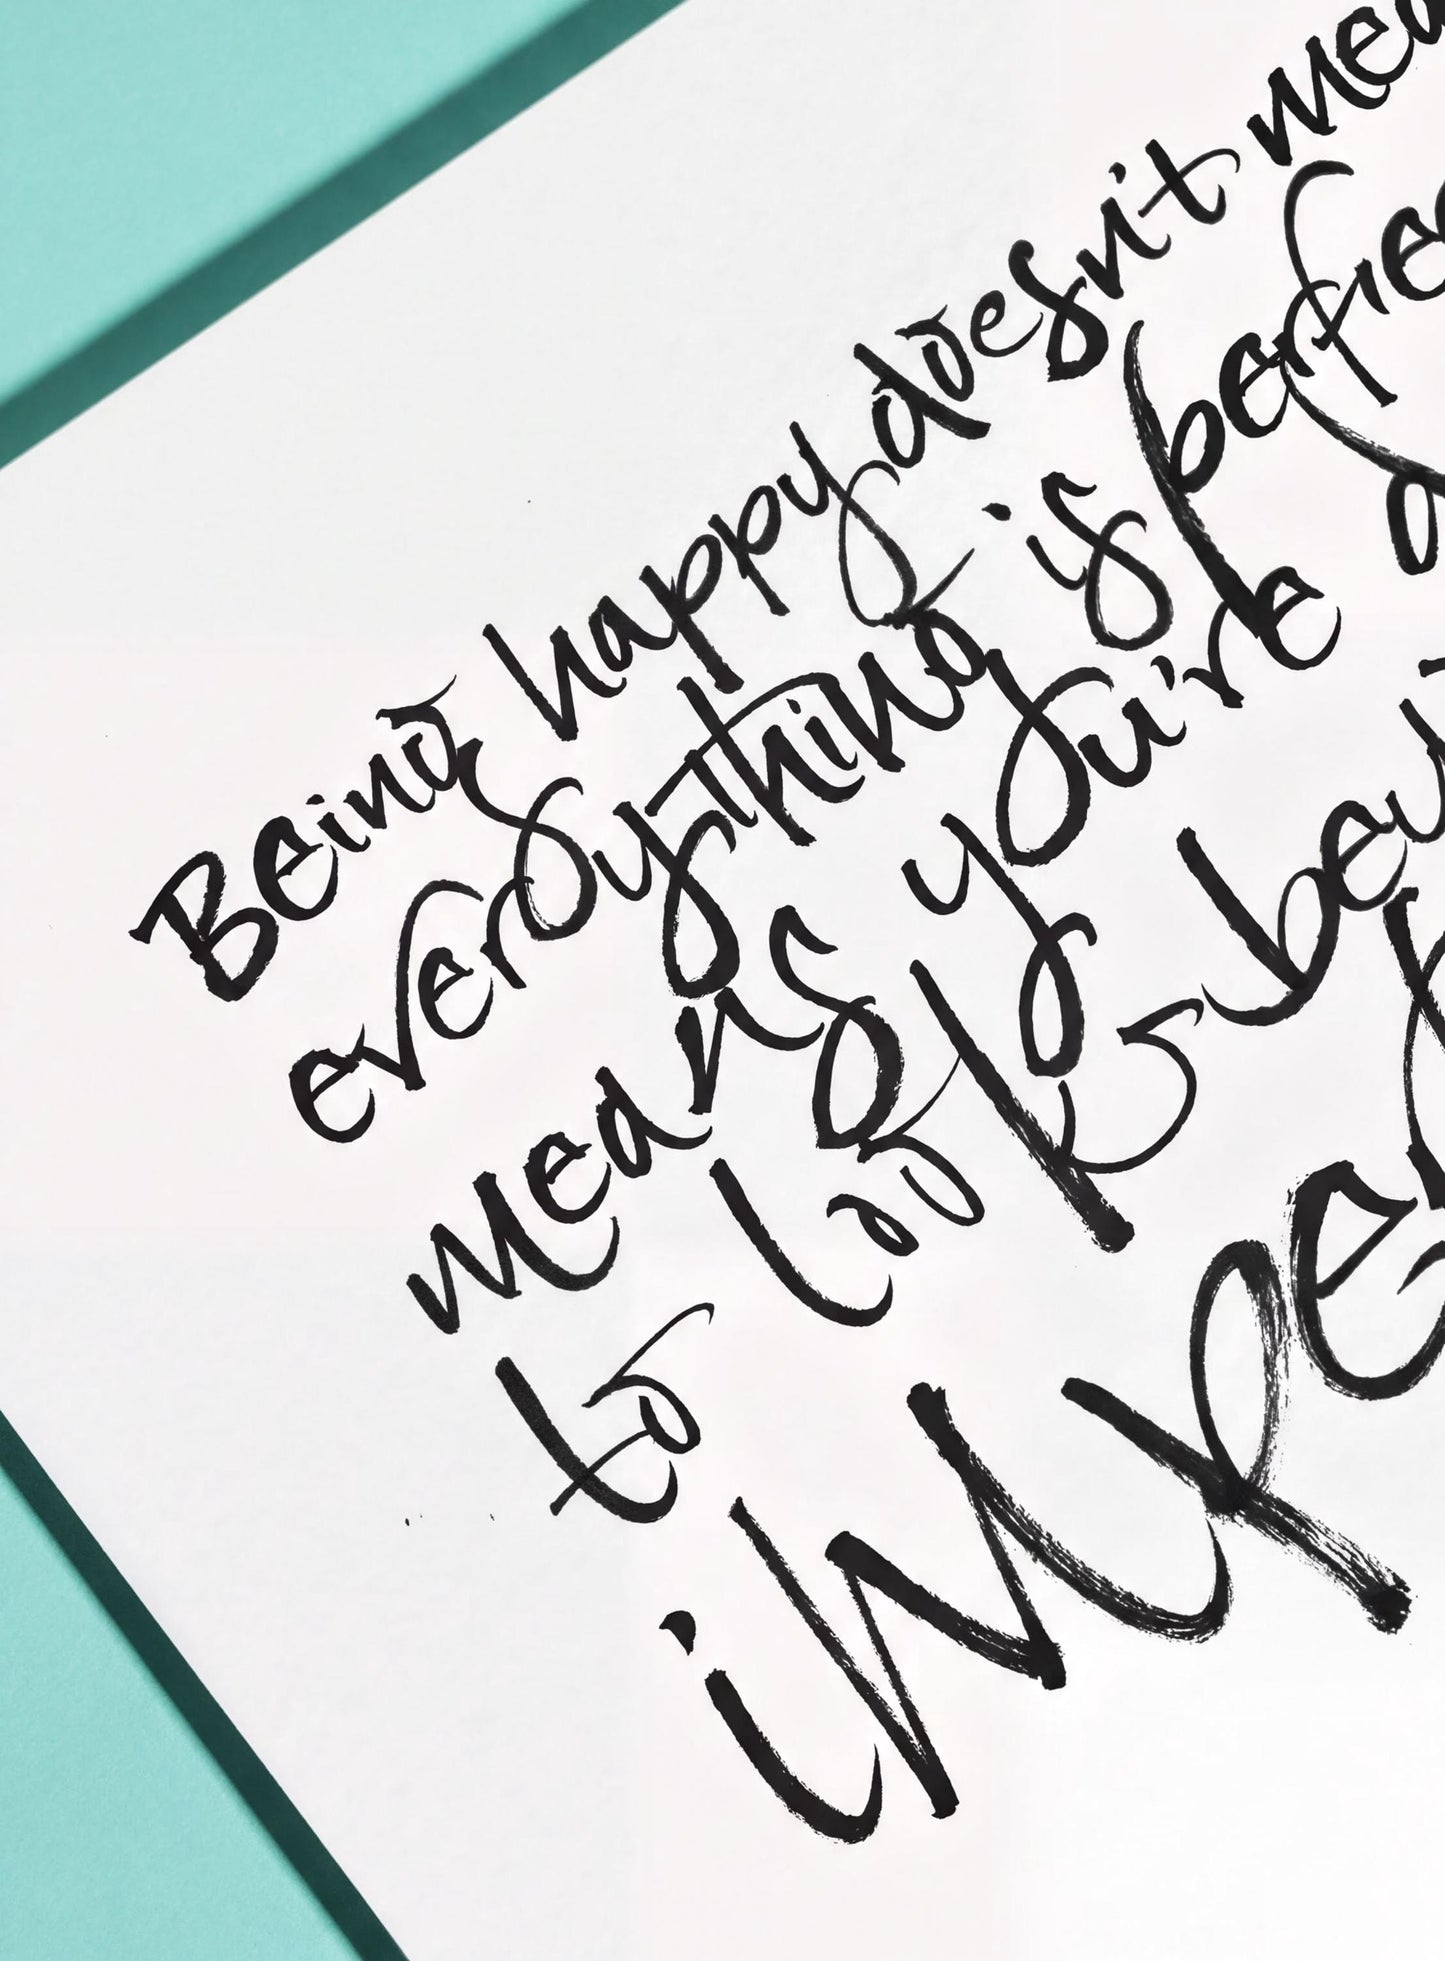 Being happy doesn't mea
everything is perfe
means you're
to look bey
imper